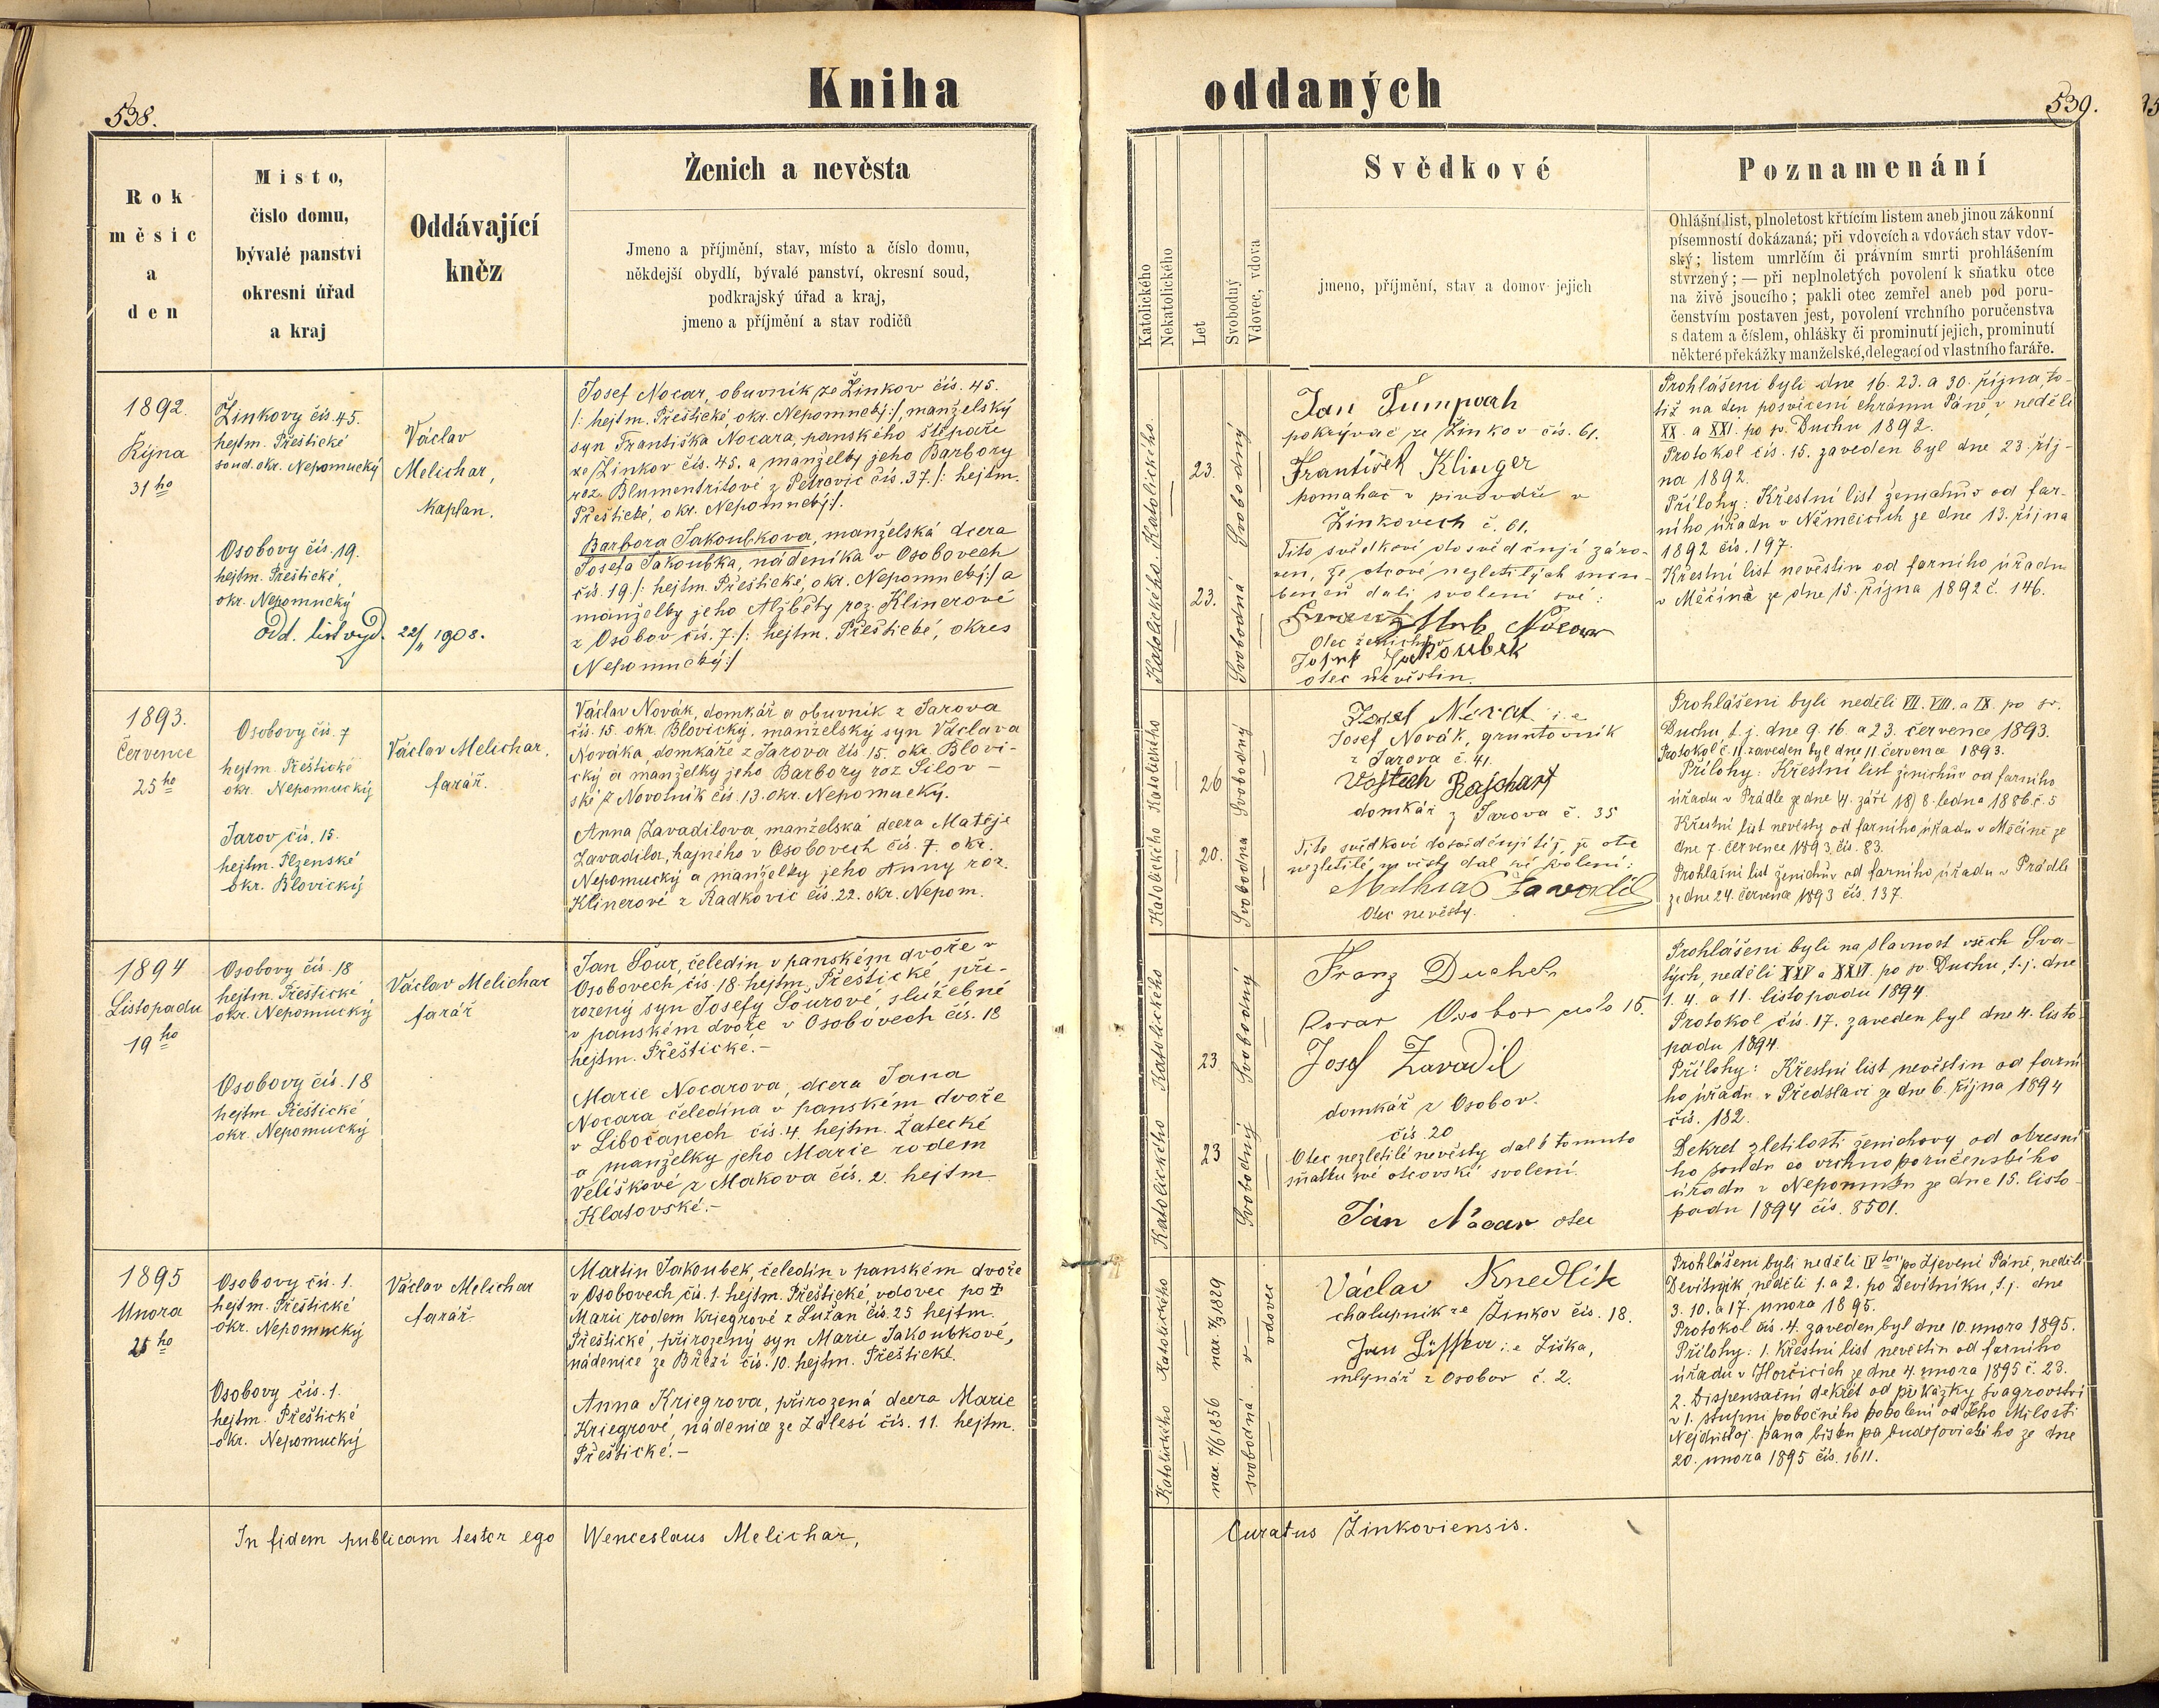 538.
Kniha
Rok
měsíc
a
den
Místo,
číslo domu,
bývalé panství
okresní úřad
a kraj
Oddávající
kněz
Ženich a nevěsta
Jmeno a příjmění, stav, místo a číslo domu,
někdejší obydlí, bývalé panství, okresní soud,
podkrajský úřad a kraj,
jmeno a příjmění a stav rodičů
1892.
Října
31ho
Žinkovy čís. 45.
hejtm. Přeštické
soud. okr. Nepomucký
Osobovy čís. 19.
hejtm. Přeštické,
okr. Nepomucký
Odd. list vyd. 22/11 1908.
Václav
Melichar,
Kaplan.
Josef Nocar, obuvník ze Žinkov čís. 45.
/: hejtm. Přeštické, okr. Nepomucký :/, manželský
syn Františka Nocara, panského štěpaře
ze Žinkov čís. 45. a manželky jeho Barbory
roz. Blumentritové z Petrovic čís. 37. /: hejtm.
Přeštické, okr. Nepomucký :/.
Barbora Jakoubkova, manželská dcera
Josefa Jakoubka, nádeníka v Osobovech
čís. 19 /: hejtm. Přeštické, okr. Nepomucký :/ a
manželky jeho Alžběty roz. Klinerové
z Osobov čís. 7. /: hejtm. Přeštické, okres
Nepomucký :/
1893.
Července
25ho
Osobovy čís. 7
hejtm. Přeštické
okr. Nepomucký
Jarov čís. 15.
hejtm. Plzenské
okr. Blovický
Václav Melichar,
farář.
Václav Novák, domkář a obuvník z Jarova
čís. 15. okr. Blovický, manželský syn Václava
Nováka, domkáře z Jarova čís. 15. okr. Blovi-
cký a manželky jeho Barbory roz Silov-
ské z Novotník čís. 13. okr. Nepomucký.
Anna Zavadilova, manželská dcera Matěje
Zavadila, hajného v Osobovech čís. 7. okr.
Nepomucký a manželky jeho Anny roz.
Klinerové z Radkovic čís. 22. okr. Nepom.
1894
Listopadu
19ho
Osobovy čís. 18
hejtm. Přeštické
okr. Nepomucký
Osobovy čís. 18
hejtm Přeštické
okr. Nepomucký
Václav Melichar
farář
Jan Šour, čeledín v panském dvoře v
Osobovech čís. 18. hejtm. Přeštické, při-
rozený syn Josefy Šourové, služebné
v panském dvoře v Osobovech čís. 18
hejtm. Přeštické.-
Marie Nocarova, dcera Jana
Nocara čeledína v panském dvoře
v Libočanech čís. 4. hejtm. Žatecké
a manželky jeho Marie rodem
Veliškové z Makova čís. 2. hejtm
Klatovské.-
1895
Února
25ho
Osobovy čís. 1.
hejtm. Přeštické
okr. Nepomucký
Osobovy čís. 1.
hejtm. Přeštické
okr. Nepomucký
Václav Melichar
farář
Martin Jakoubek, čeledín v panském dvoře
v Osobovech čís. 1. hejtm. Přeštické, vdovec po †
Marii rodem Kriegrové z Lužan čís. 25 hejtm.
Přeštické, přirozený syn Marie Jakoubkové,
nádenice ze Březí čís. 10. hejtm. Přeštické.
Anna Kriegrova, přirozená dcera Marie
Kriegrové, nádenice ze Zálesí čís. 11. hejtm.
Přeštické.-
In fidem publicam testor ego Wenceslaus Melichar,
oddaných
539.
Katolického
Nekatolického
Let
Svobodný
Vdovec, vdova
Svědkové
jmeno, příjmění, stav a domov jejich
Poznamenání
Ohlášní list, plnoletost křtícím listem aneb jinou zákonní
písemností dokázaná; při vdovcích a vdovách stav vdov-
ský; listem umrlčím či právním smrti prohlášením
stvrzený; — při neplnoletých povolení k sňatku otce
na živě jsoucího; pakli otec zemřel aneb pod poru-
čenstvím postaven jest, povolení vrchního poručenstva
s datem a číslem, ohlášky či prominutí jejich, prominutí
některé překážky manželské, delegací od vlastního faráře.
Katolického
23.
Svobodný
Katolického
23.
Svobodná
Jan
pokrývač ze Žinkov čís. 61.
František Klinger
pomahač v pivováře v
Žinkovech č. 61.
Tito svědkové dosvědčují záro-
ven, že otcové nezletilých snou-
benců dali svolení své:
Nocar
Otec ženichův
Josef Jakoubek
otec nevěstin.
Prohlášeni byli dne 16. 23. a 30. října, to-
tiž na den posvícení chrámu Páně, v neděli
XX. a XXI. po sv. Duchu 1892.
Protokol čís. 15. zaveden byl dne 23. říj-
na 1892.
Přílohy: Křestní list ženichův od far-
ního úřadu v Němčicích ze dne 13. října
1892 čís. 197.
Křestní list nevěstin od farního úřadu
v Měčíně ze dne 15. října 1892 č. 146.
Katolického
26
Svobodný
Katolického
20.
Svobodna
Josef i.e
Josef Novák, gruntovník
z Jarova č. 41.
Vojtěch Rajchart
domkář z Jarova č. 35
Tito svědkové dosvědčují též, že otec
nezletilé nevěsty dal své svolení:
Mathias Zavadil
Otec nevěsty.
Prohlášeni byli neděli VII. VIII. a IX. po sv.
Duchu, t. j. dne 9. 16. a 23. července 1893.
Protokol č. 11. zaveden byl dne 11. července 1893.
Přílohy: Křestní list ženichův od farního
úřadu v Prádle ze dne 8. ledna 1886. č. 5
Křestní list nevěsty od farního úřadu v Měčíně ze
dne 7. července 1893, čís. 83.
Prohlašní list ženichův od farního úřadu v Prádli
ze dne 24. července 1893 čís. 137.
Katolického
23
Svobodný
Katolického
23
Svobodný
Franz Duchek
Kovar Osobov cislo 15.
Josef Zavadil
domkář z Osobov.
čís. 20
Otec nezletilé nevěsty dal k tomuto
sňatku své otcovské svolení.
Jan Nocar otec
Prohlášeni byli na slavnost všech Sva-
tých, neděli XXV a XXVI. po sv. Duchu, t. j. dne
1. 4. a 11. listopadu 1894.
Protokol čís. 17. zaveden byl dne 4. listo-
padu 1894.
Přílohy: Křestní list nevěstin od farní
ho úřadu v Předslavi ze dne 6. října 1894
čís. 182.
Dekret zletilosti ženichovy od okresní
ho soudu co vrchnoporučenského
úřadu v Nepomuku ze dne 15. listo-
padu 1894 čís. 8501.
Katolického
nar. 1/3 1829
vdovec
Katolického
nar. 7/6 1856
svobodná
Václav Knedlík
chalupník ze Žinkov čís. 18.
Jan i.e Liška,
mlynář z Osobov č. 2.
Prohlášeni byli neděli IV po Zjevení Páně, neděli
Devítník, neděli 1. a 2. po Devítníku, t. j. dne
3. 10. a 17. února 1895.
Protokol čís. 4. zaveden byl dne 10. února 1895.
Přílohy: 1. Křestní list nevěstin od farního
úřadu v Horčicích ze dne 4. února 1895 č. 23.
2. Dispensační dekret od překážky švagrovství
v 1. stupni pobočného pokolení od Jeho Milosti
Nejdůstoj. pana biskupa budějovického ze dne
20. února 1895 čís. 1611.
Curatus Žinkoviensis.